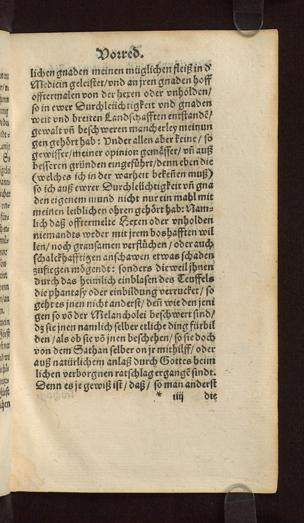 Vorred.
lichen gnaden meinen müglichen fleiß in d'
Medicin geleistet/ vnd an jren gnaden hoff
offtermalen von der hexen oder vnholden/
so in ewer Durchleüchtigkeit vnd gnaden
weit vnd breiten Landschafften entstandē/
gewalt vñ beschweren mancherley meinun
gen gehört hab: Vnder allen aber keine/ so
gewisser/ meiner opinion gemässer/ vñ auß
besseren gründen eingeführt/ denn eben die
(welches ich in der warheit bekeñen muß)
so ich auß ewrer Durchleüchtigkeit vñ gna
den eigenem mund nicht nur ein mahl mit
meinen leiblichen ohren gehört hab: Nam-
lich daß offtermelte Hexen oder vnholden
niemandts weder mit jrem boshafften wil
len/ noch grausamen verflüchen/ oder auch
schalckhafftigen anschawen etwas schaden
zufiegen mögendt: sonders dieweil jhnen
durch das heimlich einblasen des Teuffels
die phantasy oder einbildung verrucket/ so
geht es jnen nicht anderst/ deñ wie den jeni
gen so vō der Melancholei beschwert sind/
dz sie jnen namlich selber etliche ding fürbil
den/ als ob sie vō jnen beschehen/ so sie doch
von dem Sathan selber on jr mithilff/ oder
auß natürlichem anlaß durch Gottes heim
lichen verborgnen ratschlag ergangē sindt.
Denn es je gewiß ist/ daß/ so man anderst
* iiij die